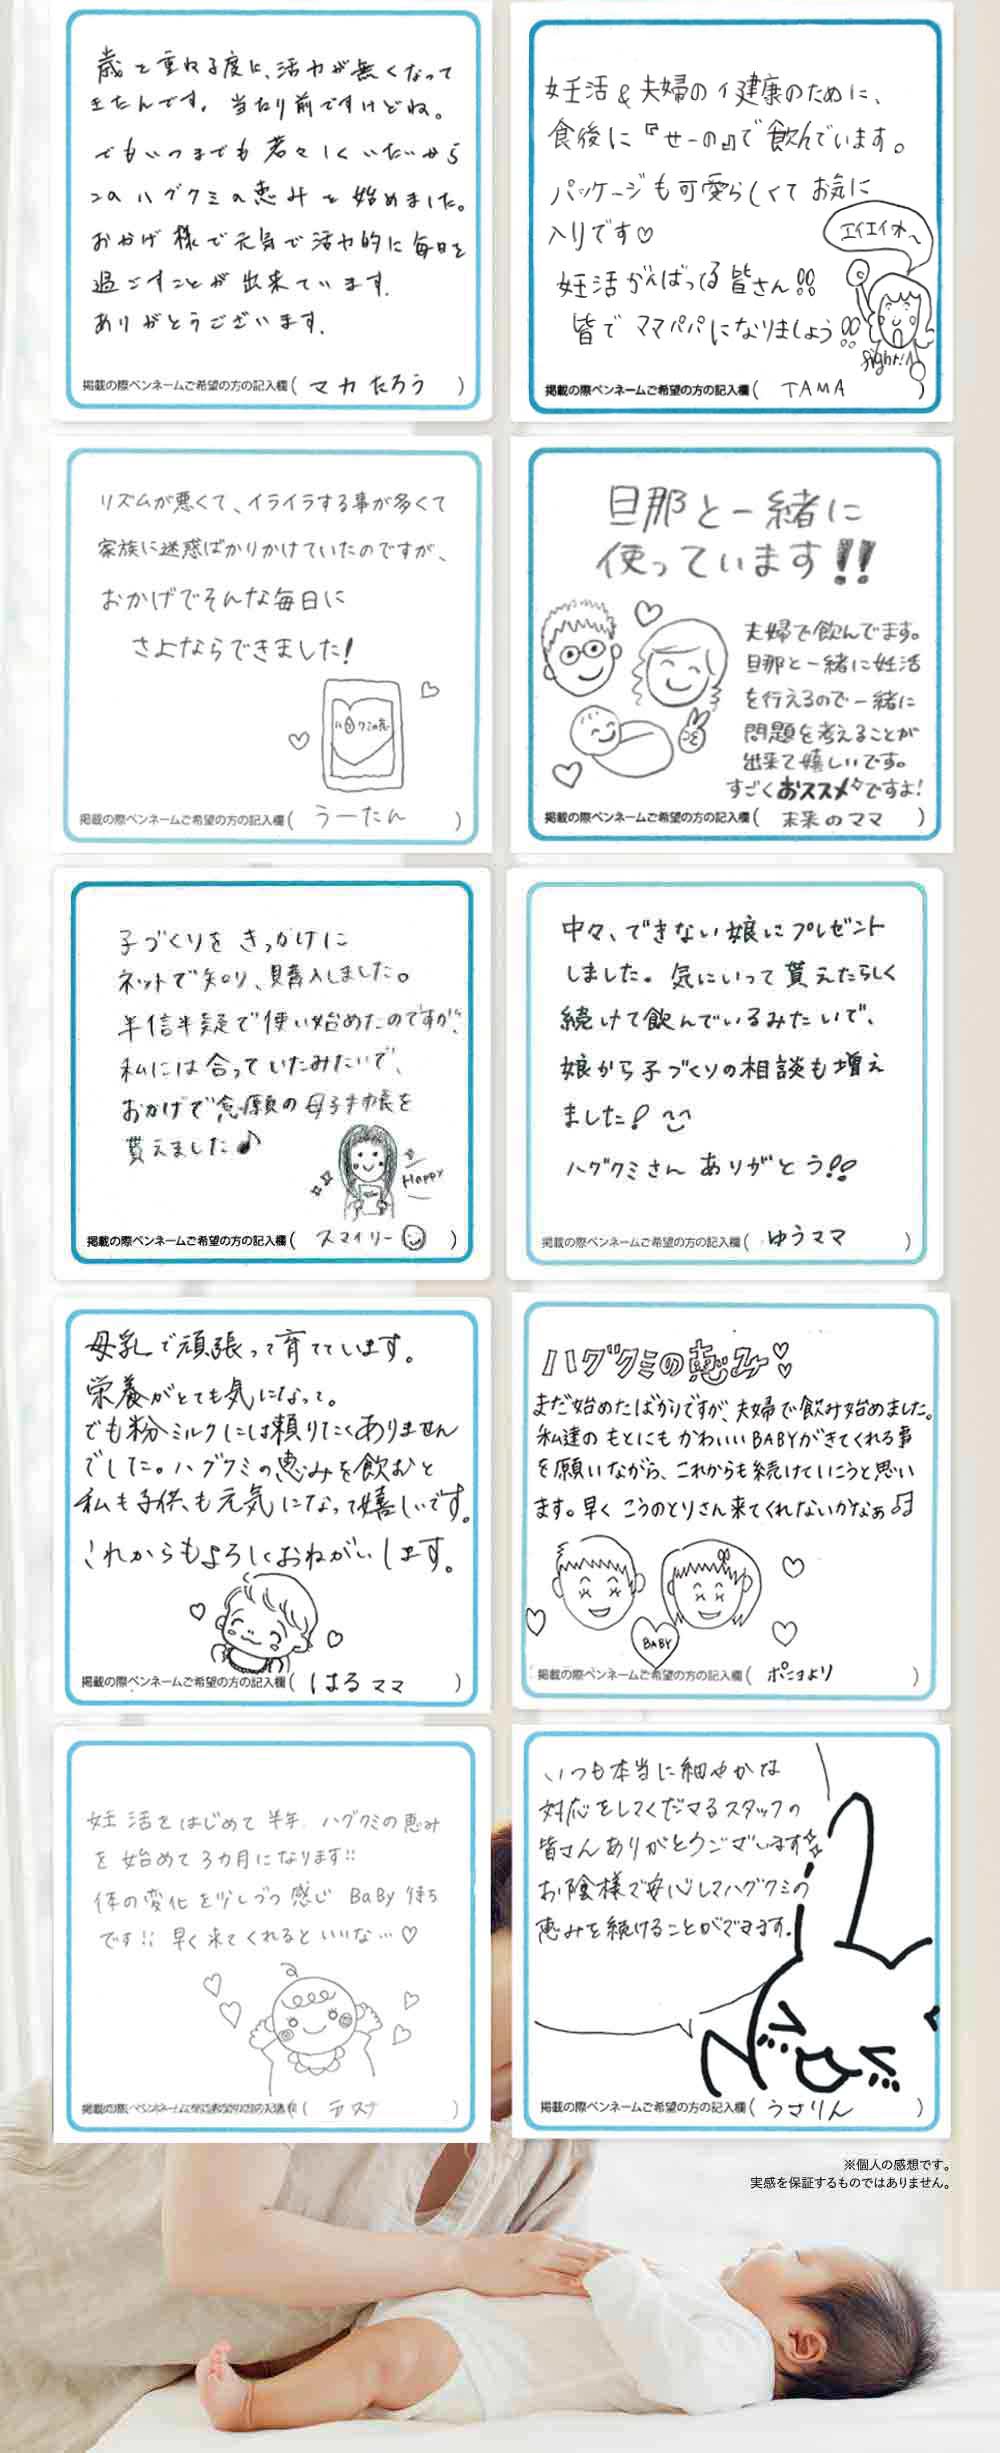 歳を重ねる度に、活力が無くなって
きたんです。当たり前ですけどね。
でもいつまでも若々しくいたいから
このハグクミの恵みを始めました。
おかげ様で元気で活力的に毎日を
過ごすことが出来ています。
ありがとうございます。
掲載の際ペンネームご希望の方の記入欄( マカたろう )
妊活&夫婦の健康のために、
食後に『せーの』で飲んでいます。
パッケージも可愛らしくてお気に
入りです♡
妊活がんばってる皆さん!!
皆でママパパになりましょう!!
エイエイオ〜
fight!!
掲載の際ペンネームご希望の方の記入欄( TAMA )
リズムが悪くて、イライラする事が多くて
家族に迷惑ばかりかけていたのですが、
おかげでそんな毎日に
さよならできました!
掲載の際ペンネームご希望の方の記入欄( うーたん )
旦那と一緒に
使っています!!
夫婦で飲んでます。
旦那と一緒に妊活
を行えるので一緒に
問題を考えることが
出来て嬉しいです。
すごくおススメですよ!
掲載の際ペンネームご希望の方の記入欄( 未来のママ )
子づくりをきっかけに
ネットで知り、購入しました。
半信半疑で使い始めたのですが、
私には合っていたみたいで、
おかげで念願の母子手帳を
貰えました♪
Happy
掲載の際ペンネームご希望の方の記入欄( スマイリー )
中々、できない娘にプレゼント
しました。気にいって貰えたらしく
続けて飲んでいるみたいで、
娘から子づくりの相談も増え
ました!
ハグクミさんありがとう!!
掲載の際ペンネームご希望の方の記入欄( ゆうママ )
母乳で頑張って育てています。
栄養がとても気になって。
でも粉ミルクには頼りたくありません
でした。ハグクミの恵みを飲むと
私も子供も元気になって嬉しいです。
これからもよろしくおねがいします。
掲載の際ペンネームご希望の方の記入欄( はるママ )
ハグクミの恵み♡
まだ始めたばかりですが、夫婦で飲み始めました。
私達のもとにもかわいいBABYができてくれる事
を願いながら、これからも続けていこうと思い
ます。早くこうのとりさん来てくれないかなぁ♫
BABY
掲載の際ペンネームご希望の方の記入欄( ポニョより )
妊活をはじめて半年。ハグクミの恵み
を始めて3カ月になります!!
体の変化を少しづつ感じ BaBy待ち
です!! 早く来てくれるといいな…♡
いつも本当に細やかな
対応をしてくださるスタッフの
皆さんありがとうございます
お陰様で安心してハグクミの
恵みを続けることができます。
掲載の際ペンネームご希望の方の記入欄( うさりん )
※個人の感想です。
実感を保証するものではありません。